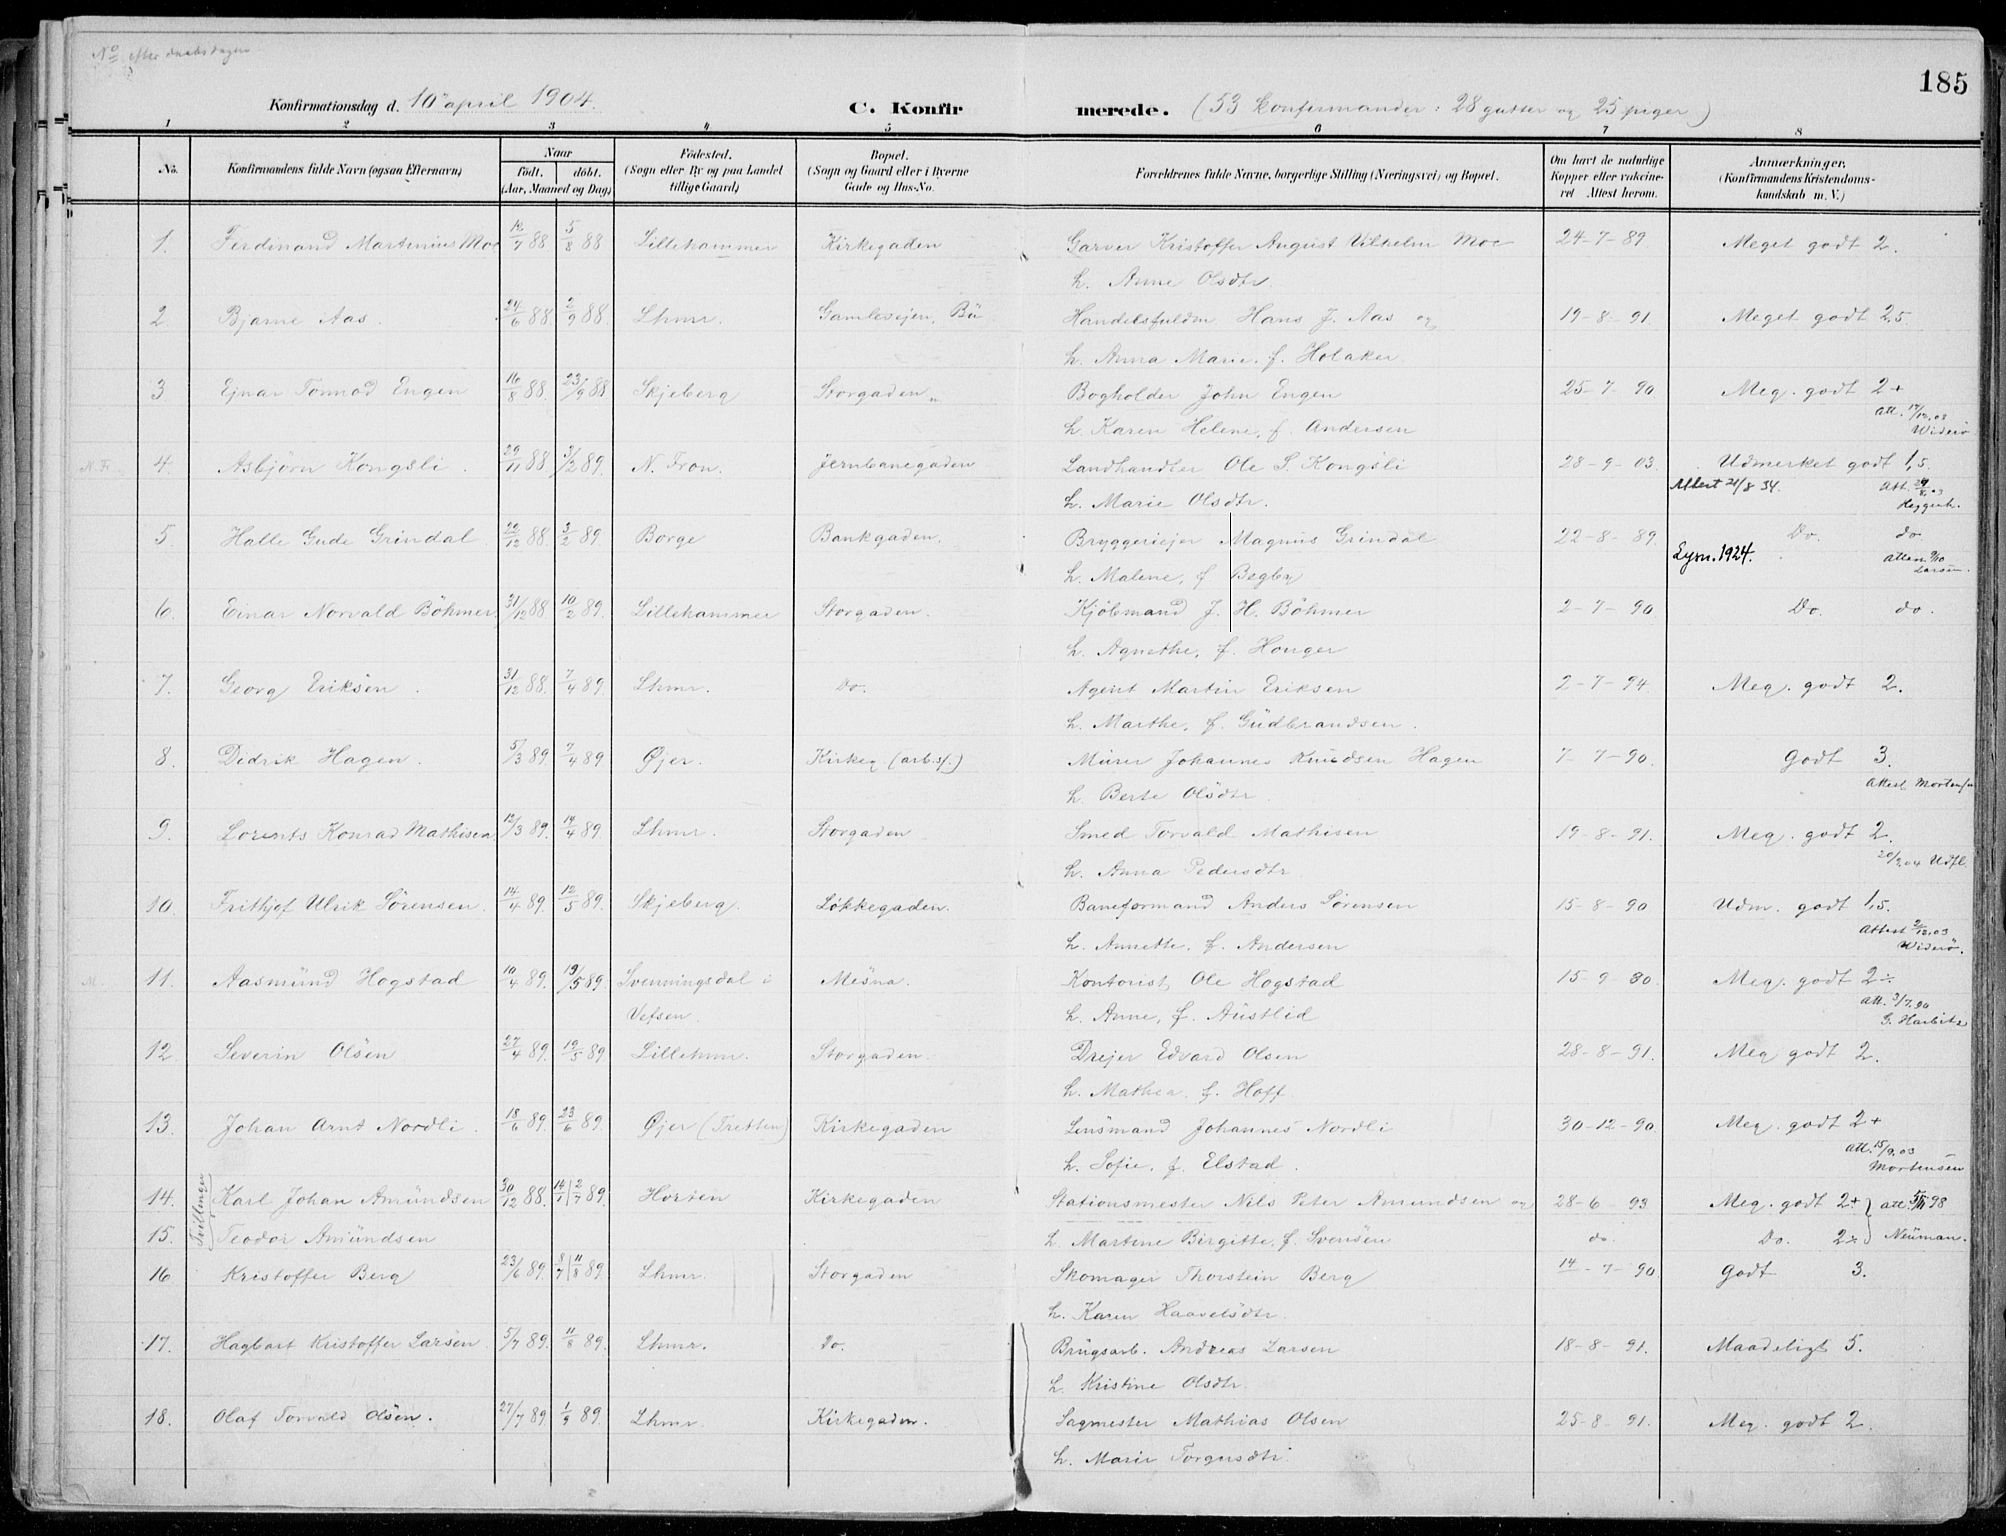 No efter daabsdagen
185
Konfirmationsdag d. 10de april 1904. C. Konfirmerede. (53 Konfirmander: 28 gutter og 25 piger)
1 2 3 4 5 6 7 8
No. Konfirmandens fulde Navn (ogsaa Efternavn) Naar født. døbt. (Aar, Maaned og Dag) Fødested. (Sogn eller By og paa Landet tillige Gaard) Bopæl. (Sogn og Gaard eller i Byerne Gade og Hus-No. Forældrenes fulde Navne, borgerlige Stilling (Næringsvei) og Bopæl. Om havt de naturlige Kopper eller vaccineret Attest herom. Anmærkninger, (Konfirmandens Kristendomskundskab m. V.)
1. Ferdinand Martinius Moe 18/7 88 5/8 88 Lillehammer Kirkegaden Garver Kristoffer August Vilhelm Moe 24-7-89 Meget godt 2.
h. Anne Olsdtr.
2 Bjarne Aas. 24/6 88. 2/9 88. Lhmr. Gamlevejen, Bü Handelsfuldm Hans J. Aas og 19-8-91. Meget godt 2,5
h. Anna Marie, f. Holaker
3 Ejnar Tormod Engen 16/8 88. 23/9 88 Skjeberg Storgaden Bogholder John Engen 25-7-90 Meg. godt 2+
h. Karen Helene, f. Andersen Att. 17/12.03 Widerö
N. Fr. 4. Asbjörn Kongsli. 29/11 88. 3/2 89. N. Fron. Jernbanegaden Landhandler Ole S. Kongsli 28-9-03. Udmerket godt 1,5.
h. Marie Olsdtr. Attest 21/8 34. Att.
5. Halle Gude Grindal 22/12 88. 3/2 89. Borge Bankgaden. Bryggeriejer Magnus Grindal 22-8-89. Do. do.
h. Malene, f. Begby Lysn. 1924. Larsen.
6. Einar Norvald Böhmer. 31/12 88. 10/2 89. Lillehammer Storgaden. Kjöbmand J. H. Böhmer 2-7-90 Do. do.
h. Agnethe, f. Honger
7. Georg Eriksen. 31/12 88. 7/4 89. Lhmr. Do. Agent Martin Eriksen 2-7-94. Meg. godt 2.
h. Marthe, f. Gudbrandsen.
8. Didrik Hagen. 5/3 89. 7/4 89 Øjer. Kirkeg (arb.sf.) Murer Johannes Knudsen Hagen 7-7-90. Godt 3.
h. Berte Olsdtr. Attest Mortensen
9. Lorents Konrad Mathisen 12/3 89. 14/4 89. Lhmr. Storgaden Smed Torvald Mathisen 19-8-91. Meg. godt 2.
h. Anna Pedersdtr. 20/9.04 Udfl.
10. Frithjof Ulrik Sörensen. 14/4 89. 12/5 89. Skjeberg. Løkkegaden. Baneformand Anders Sörensen 15-8-90 Udm. godt 1,5.
h. Annette, f. Andersen Attest 2/12.03 Widerö.
M. 11. Aasmund Hogstad 10/4 89. 19/5 89. Svenningsdal i Mesna. Kontorist Ole Hogstad 15-9-80 Meg. godt 2÷
Vefsen. h. Anne, f. Austlid Att. 3/7.90 G. Harbitz
12. Severin Olsen 27/4 89. 19/5 89. Lillehmr. Storgaden. Drejer Edvard Olsen 28-8-91. Meg godt 2.
h. Mathea, f. Hoff.
13. Johan Arnt Nordli. 18/6 89. 23/6 89. Øjer (Tretten) Kirkegaden Lensmand Johannes Nordli 30-12-90. Meg. godt 2+
h. Sofie, f. Elstad. Att. 15/9.03 Mortensen
Tvillinger
14. Karl Johan Amundsen 30/12 88. 14/1 | 2/7 89. Horten Kirkegaden Stationsmester Nils Peter Amundsen og 28-6-93 Meg. godt 2+ Att. 98
15. Teodor Amundsen h. Martine Birgitte, f. Svensen do. Do. 2÷ Neuman.
16 Kristoffer Berg 23/6 89. 8/7 | 11/8 89. Lhmr. Storgaden Skomager Thorstein Berg 14-7-90. Godt 3.
h. Karen Haavelsdtr.
17. Hagbart Kristoffer Larsen. 5/7 89. 11/8 89. Lhmr. Do. Brugsarb. Andreas Larsen 18-8-91. Maadeligt 5.
h. Kristine Olsdtr.
18. Olaf Torvald Olsen. 27/7 89. 1/9 89. Lhmr. Kirkegaden. Sagmester Mathias Olsen 25-8-91. Meg. godt 2.
h. Marie Torgersdtr.